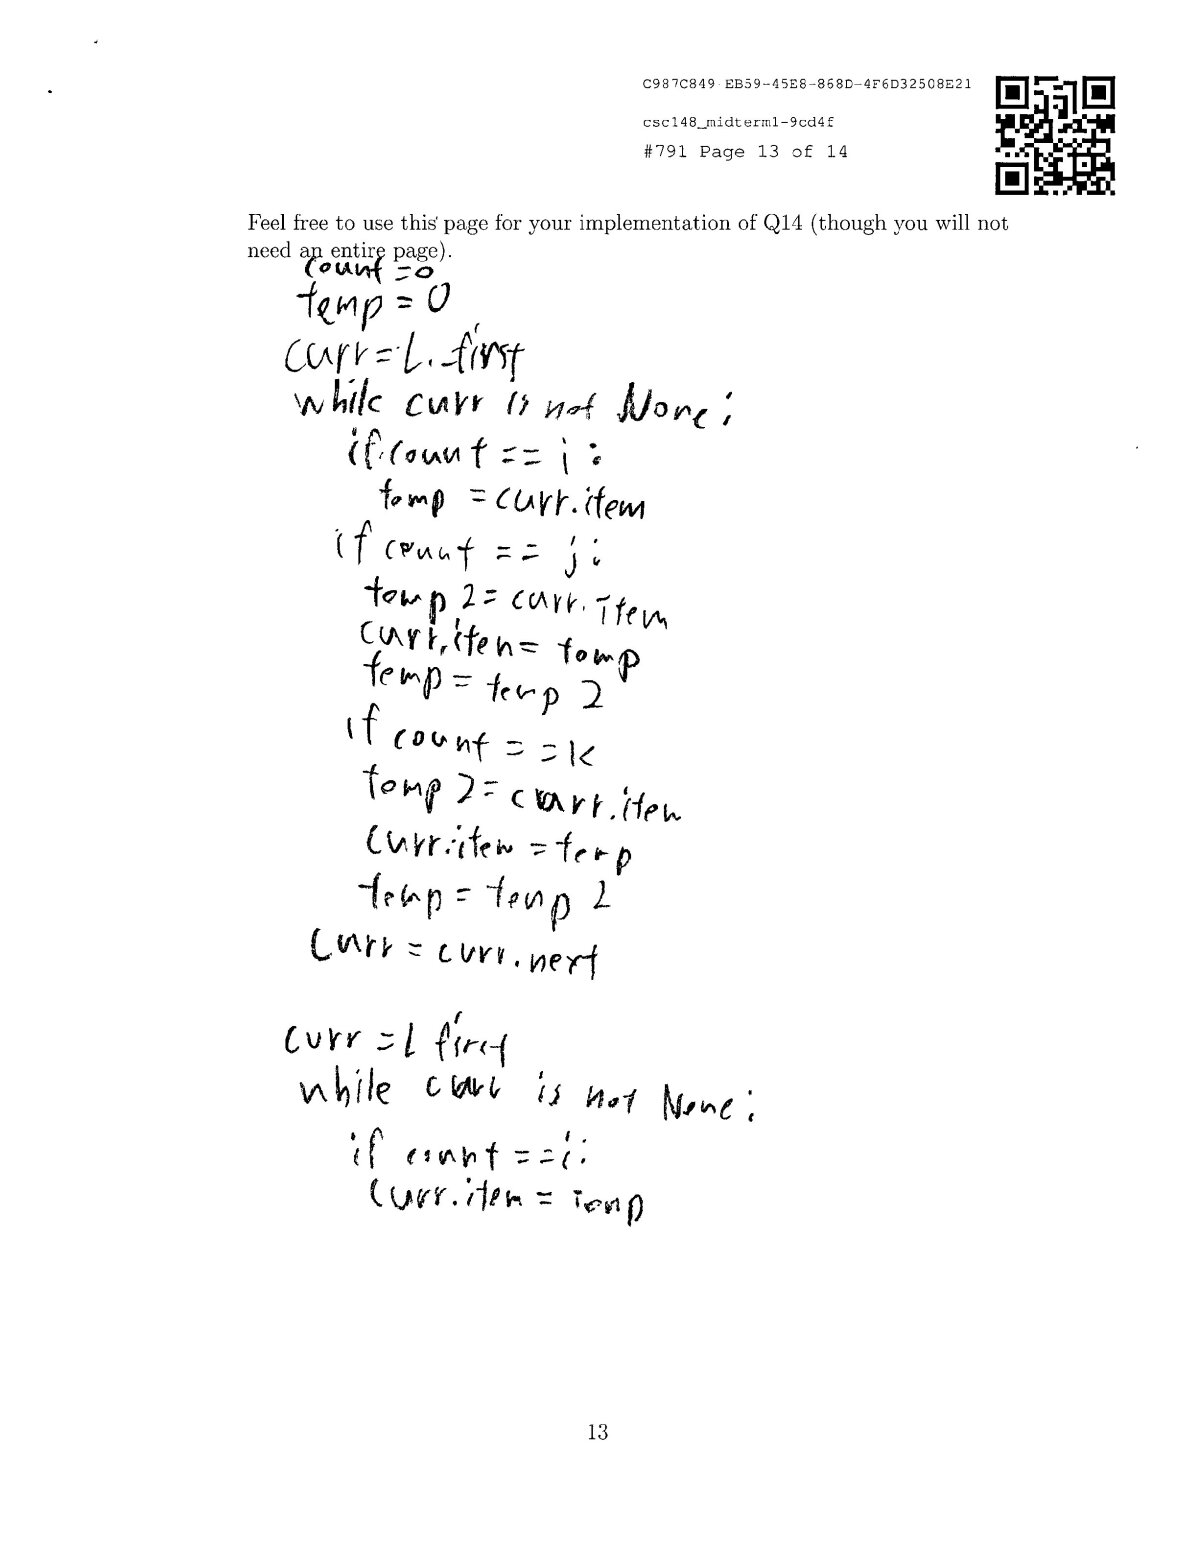 C987C849-EB59-45E8-868D-4F6D32508E21
csc148_midterm1-9cd4f
#791 Page 13 of 14
Feel free to use this page for your implementation of Q14 (though you will not
need an entire page).
count =0
temp = 0
curr = L.first
while curr is not None:
if count == i:
temp = curr.item
if count == j:
temp 2 = curr.item
curr.item = temp
temp = temp 2
if count == k
temp 2 = curr.item
curr.item = temp
temp = temp 2
curr = curr.next
curr = L first
while curr is not None:
if count == i:
curr.item = temp
13